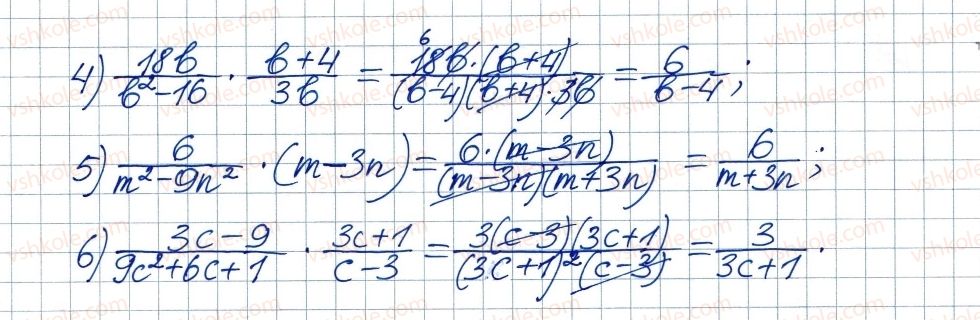 4) \frac{18b}{b^2-16} \cdot \frac{b+4}{3b} = \frac{\overset{6}{18}b \cdot (b+4)}{(b-4)(b+4) \cdot 3b} = \frac{6}{b-4};
5) \frac{6}{m^2-9n^2} \cdot (m-3n) = \frac{6 \cdot (m-3n)}{(m-3n)(m+3n)} = \frac{6}{m+3n};
6) \frac{3c-9}{9c^2+6c+1} \cdot \frac{3c+1}{c-3} = \frac{3(c-3)(3c+1)}{(3c+1)^2(c-3)} = \frac{3}{3c+1}.
vshkole.com